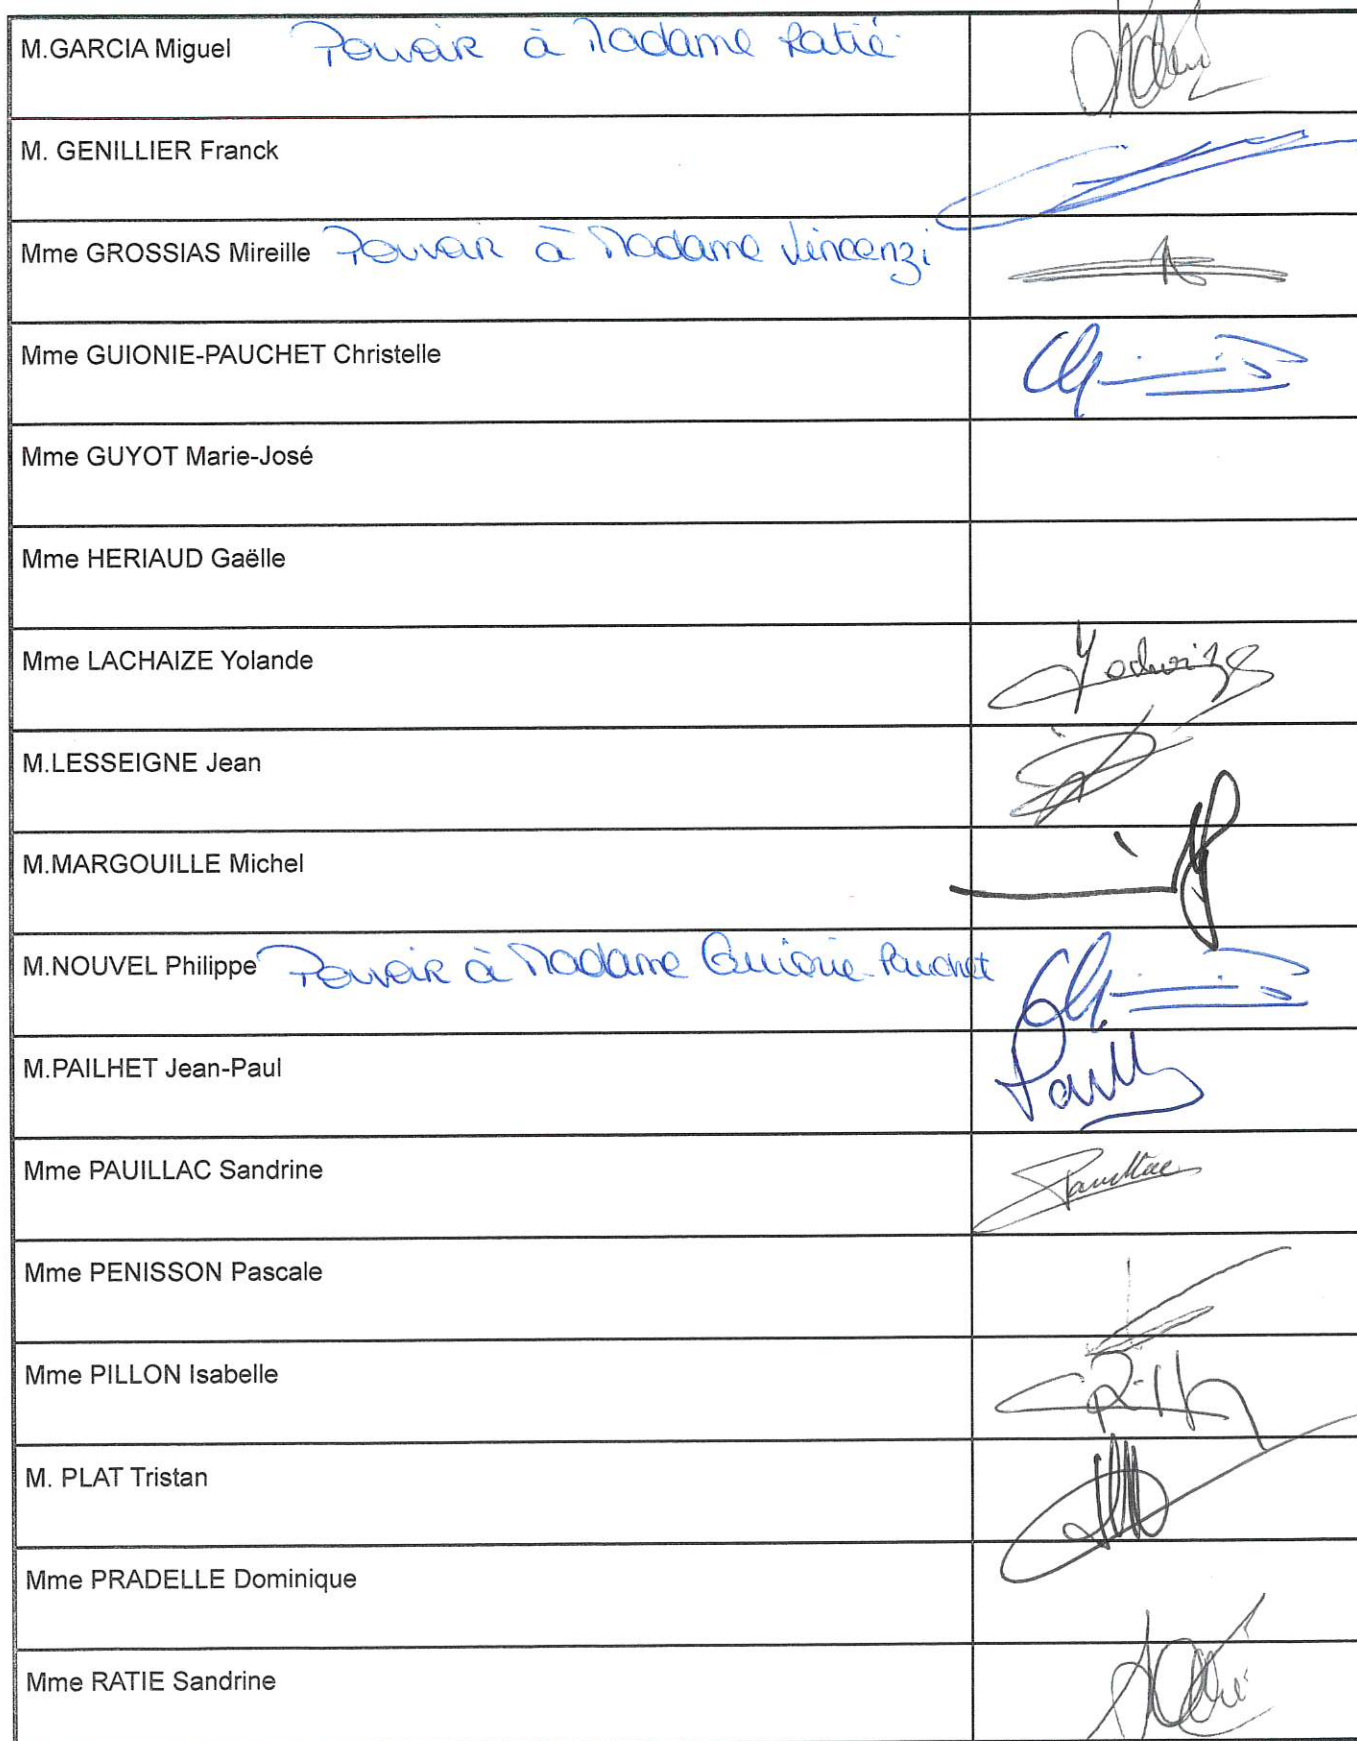 M.GARCIA Miguel Pouvoir à Madame Ratié
M. GENILLIER Franck
Mme GROSSIAS Mireille Pouvoir à Madame Vincenzi
Mme GUIONIE-PAUCHET Christelle
Mme GUYOT Marie-José
Mme HERIAUD Gaëlle
Mme LACHAIZE Yolande
M.LESSEIGNE Jean
M.MARGOUILLE Michel
M.NOUVEL Philippe Pouvoir à Madame Guionie-Pauchet
M.PAILHET Jean-Paul
Mme PAUILLAC Sandrine
Mme PENISSON Pascale
Mme PILLON Isabelle
M. PLAT Tristan
Mme PRADELLE Dominique
Mme RATIE Sandrine